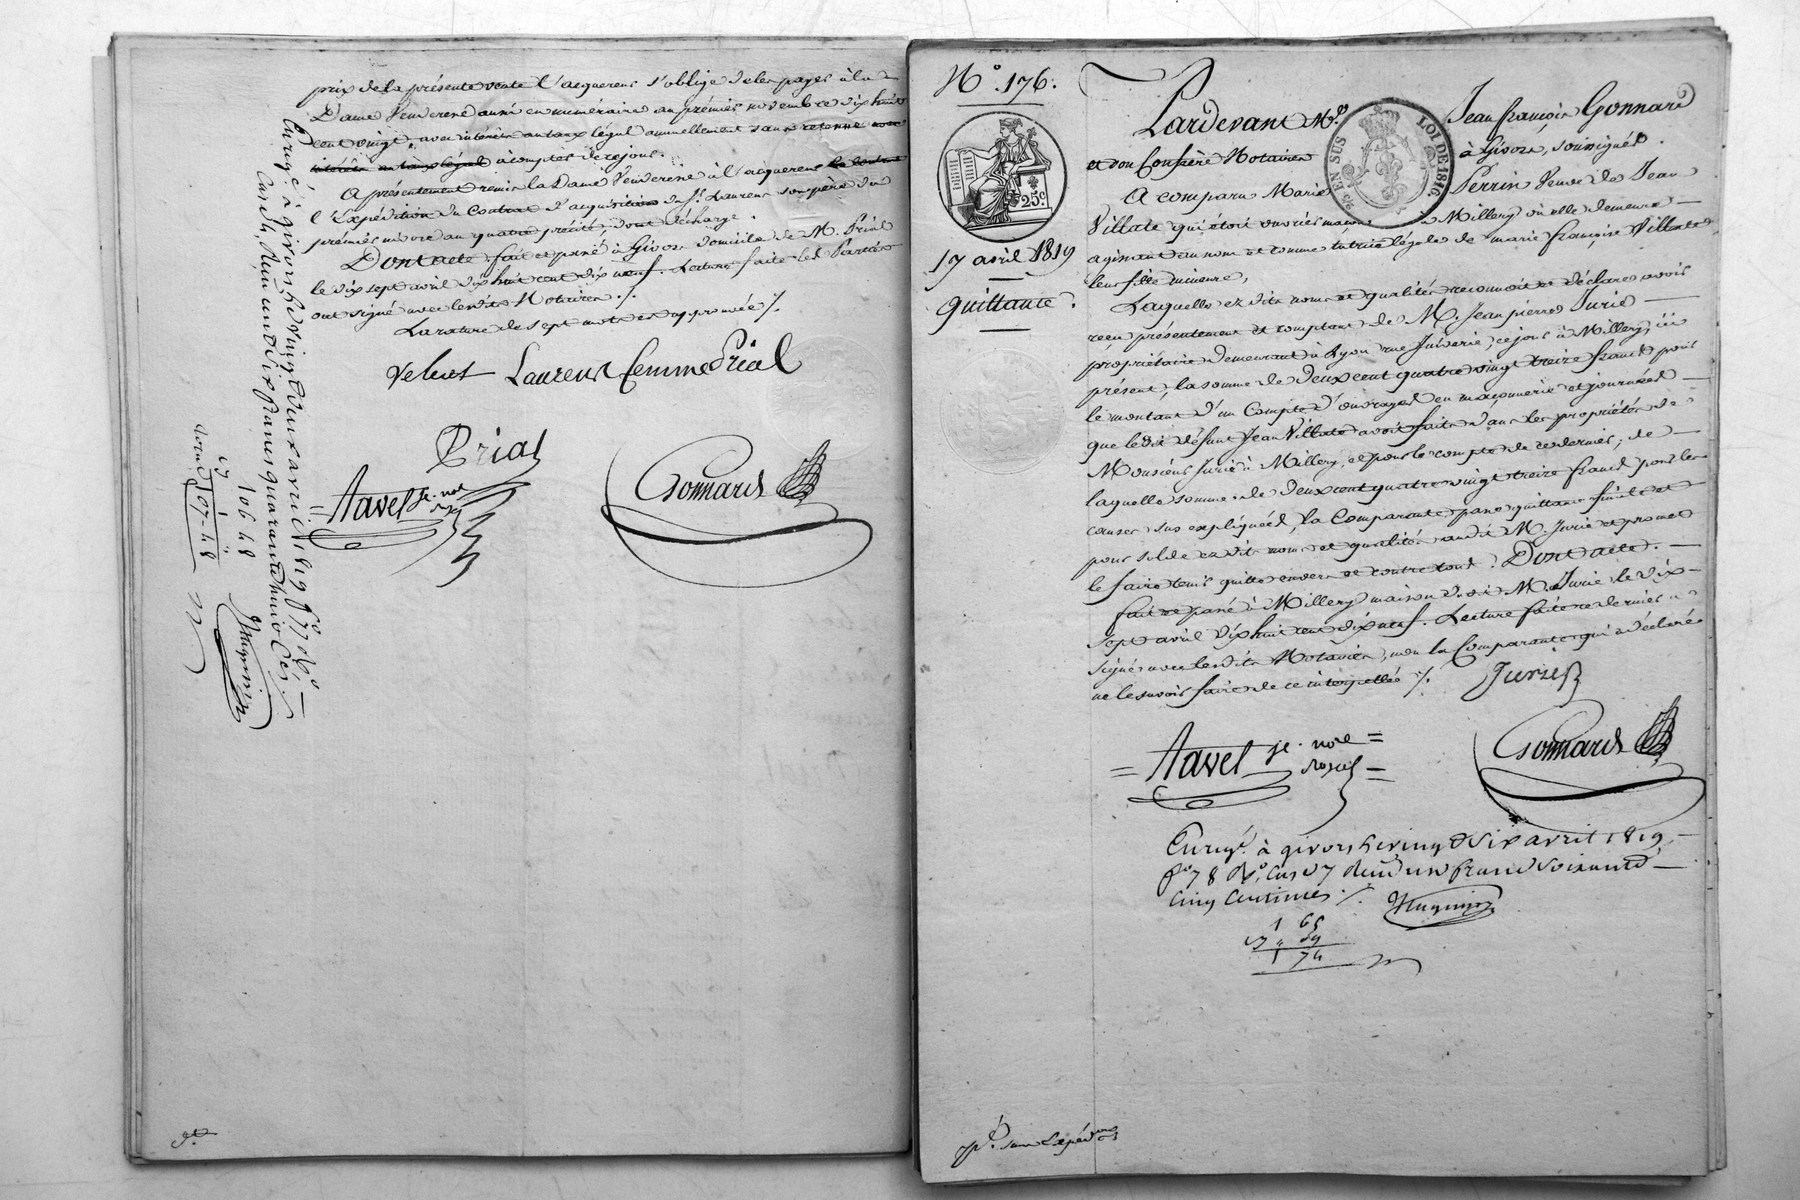 prix de la présente vente l'acquereur s'oblige de les payer à la
Dame Venderesse aussi en numéraire au premier novembre dix huit
cent vingt, avec intérêts au taux légal annuellement sans retenue avec
intérêts au taux légal à compter de ce jour.
A présentement remis la Dame Venderesse à l'acquereur
l'Expédition du Contrat d'acquisition du Sr. Laurent son père du
premier nivose an quatre précité, dont décharge.
Dont acte, fait et passé à Givors domicile de M. Prial
le dix sept avril dix huit cent dix neuf. Lecture faite les Parties
ont signé avec lesdits Notaires ./.
La rature de sept mots est approuvée /.
Veluet Laurent femme Prial
Prial
Tavel je. not.
Gonnard
Enregé. à givors le vingt deux avril 1819 f° 77 v°
Cas
cent dix francs quarante huit Ces.
106 48
1 "
107 - 48
Huguin
N°. 176.
25 c
17 avril 1819
Quittance.
25 EN SUS
LOI DE 1816.
Pardevant Me. Jean françois Gonnard
et son Confrère Notaires à Givors, soussignés.
A comparu Marie Perrin veuve de Jean
Villate qui étoit ouvrier maçon à Millery où elle demeure
agissant au nom et comme tutrice légale de marie françoise Villate
leur fille mineure,
Laquelle ez dits noms et qualités reconnoit et déclare avoir
reçu présentement et comptant de M. Jean pierre Jurie
propriétaire demeurant à Lyon rue Juiverie, ce jour à Millery, ici
présent, la somme de Deux cent quatre vingt treize francs pour
le montant d'un Compte d'ouvrages en maçonnerie et journées
que ledit défunt Jean Villate avoit faits dans les propriétés de
Monsieur Jurie à Millery, et pour le compte de ce dernier, de
laquelle somme de deux cent quatre vingt treize francs pour les
causes sus expliquées, la Comparante passe quittance finale et
pour solde ez dits noms et qualités audit M. Jurie et promet
le faire tenir quitte envers et contre tous. Dont acte.
fait et passé à Millery maison dudit M. Jurie le dix
sept avril dix huit cent dix neuf. Lecture faite ce dernier a
signé avec lesdits Notaires, non la Comparante qui a déclaré
ne le savoir faire de ce interpellée /.
Jurie
Tavel je. not.
Gonnard
Enregé. à givors le vingt Six avril 1819
f° 78 v°. Case 7 Reçu un franc Soixante
Cinq Centimes ./. Huguin
1 65
" 09
1 74